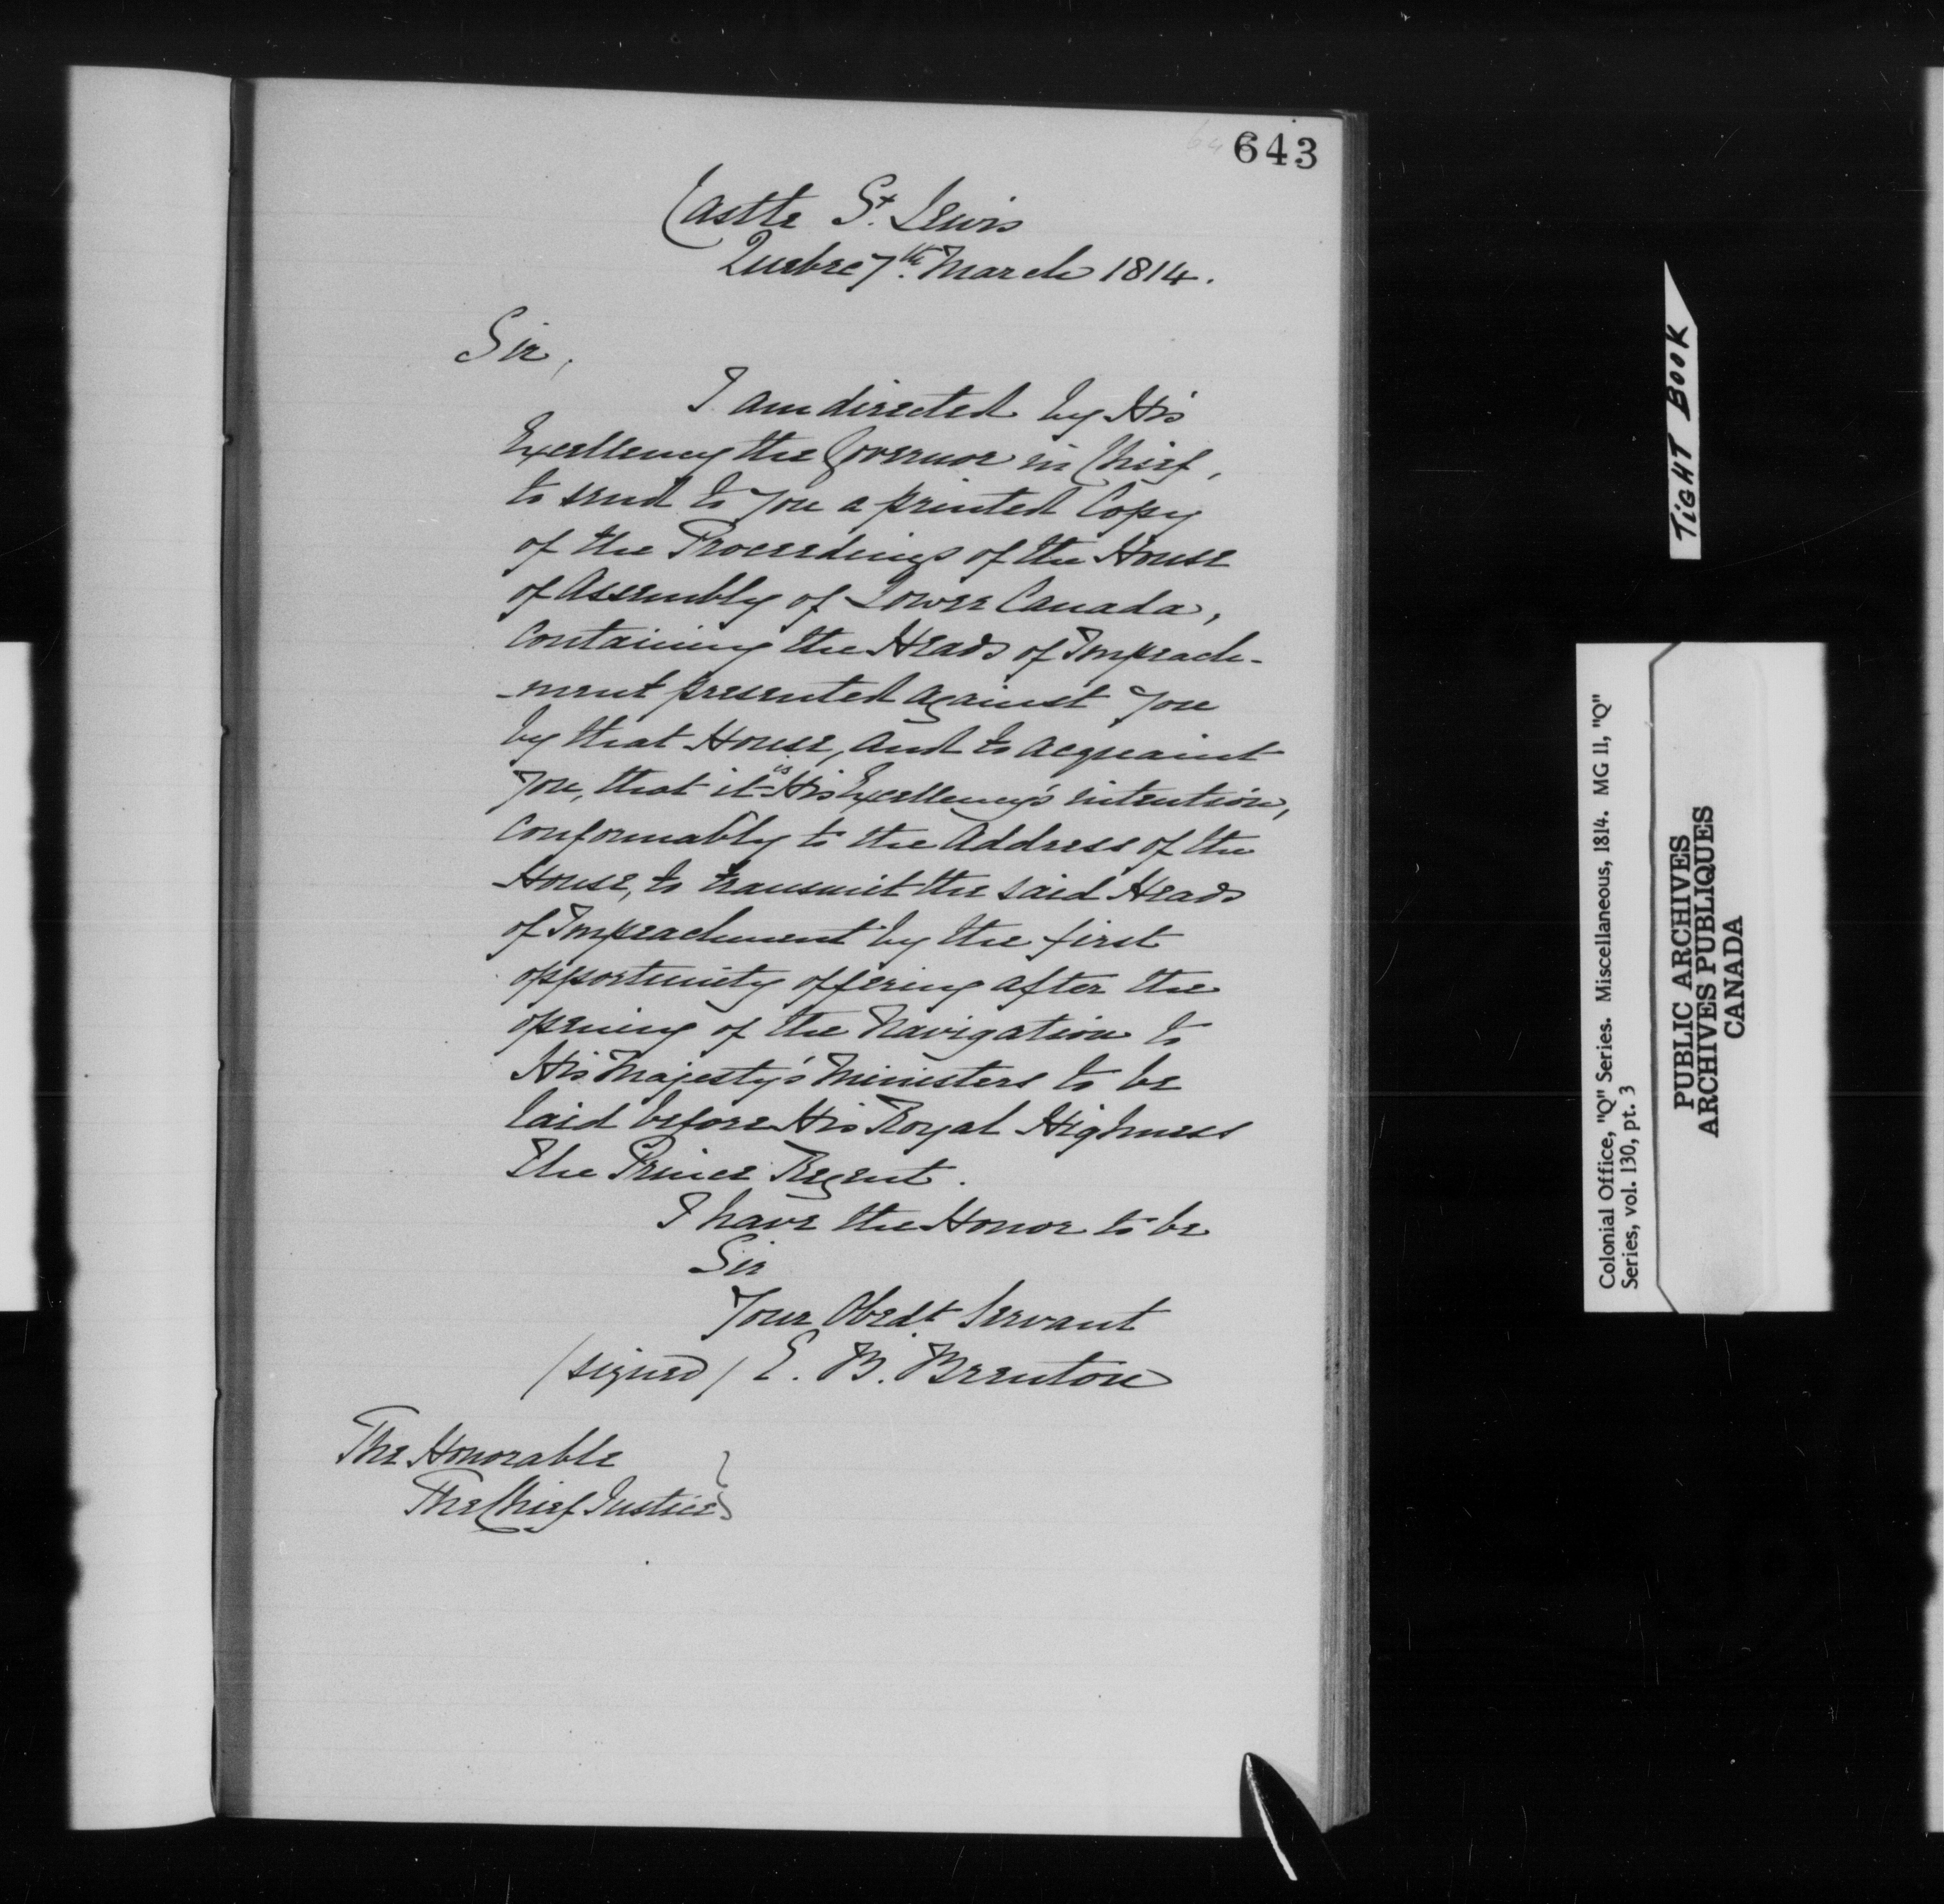 643
Castle St. Lewis
Quebec 7th March 1814.
Sir,
I am directed by His
Excellency the Governor in Chief,
to send to you a printed Copy
of the Proceedings of the House
of Assembly of Lower Canada,
containing the Heads of Impeach-
-ment presented against you
by that House, and to acquaint
you, that it is His Excellency's intention,
conformably to the Address of the
House, to transmit the said Heads
of Impeachment by the first
opportunity offering after the
opening of the Navigation to
His Majesty's Ministers to be
laid before His Royal Highness
The Prince Regent.
I have the Honor to be
Sir
Your Obedt. Servant
(signed) E. B. Brenton
The Honorable
The Chief Justice
TIGHT BOOK
Colonial Office, "Q" Series. Miscellaneous, 1814. MG 11, "Q"
Series, vol. 130, pt. 3
PUBLIC ARCHIVES
ARCHIVES PUBLIQUES
CANADA